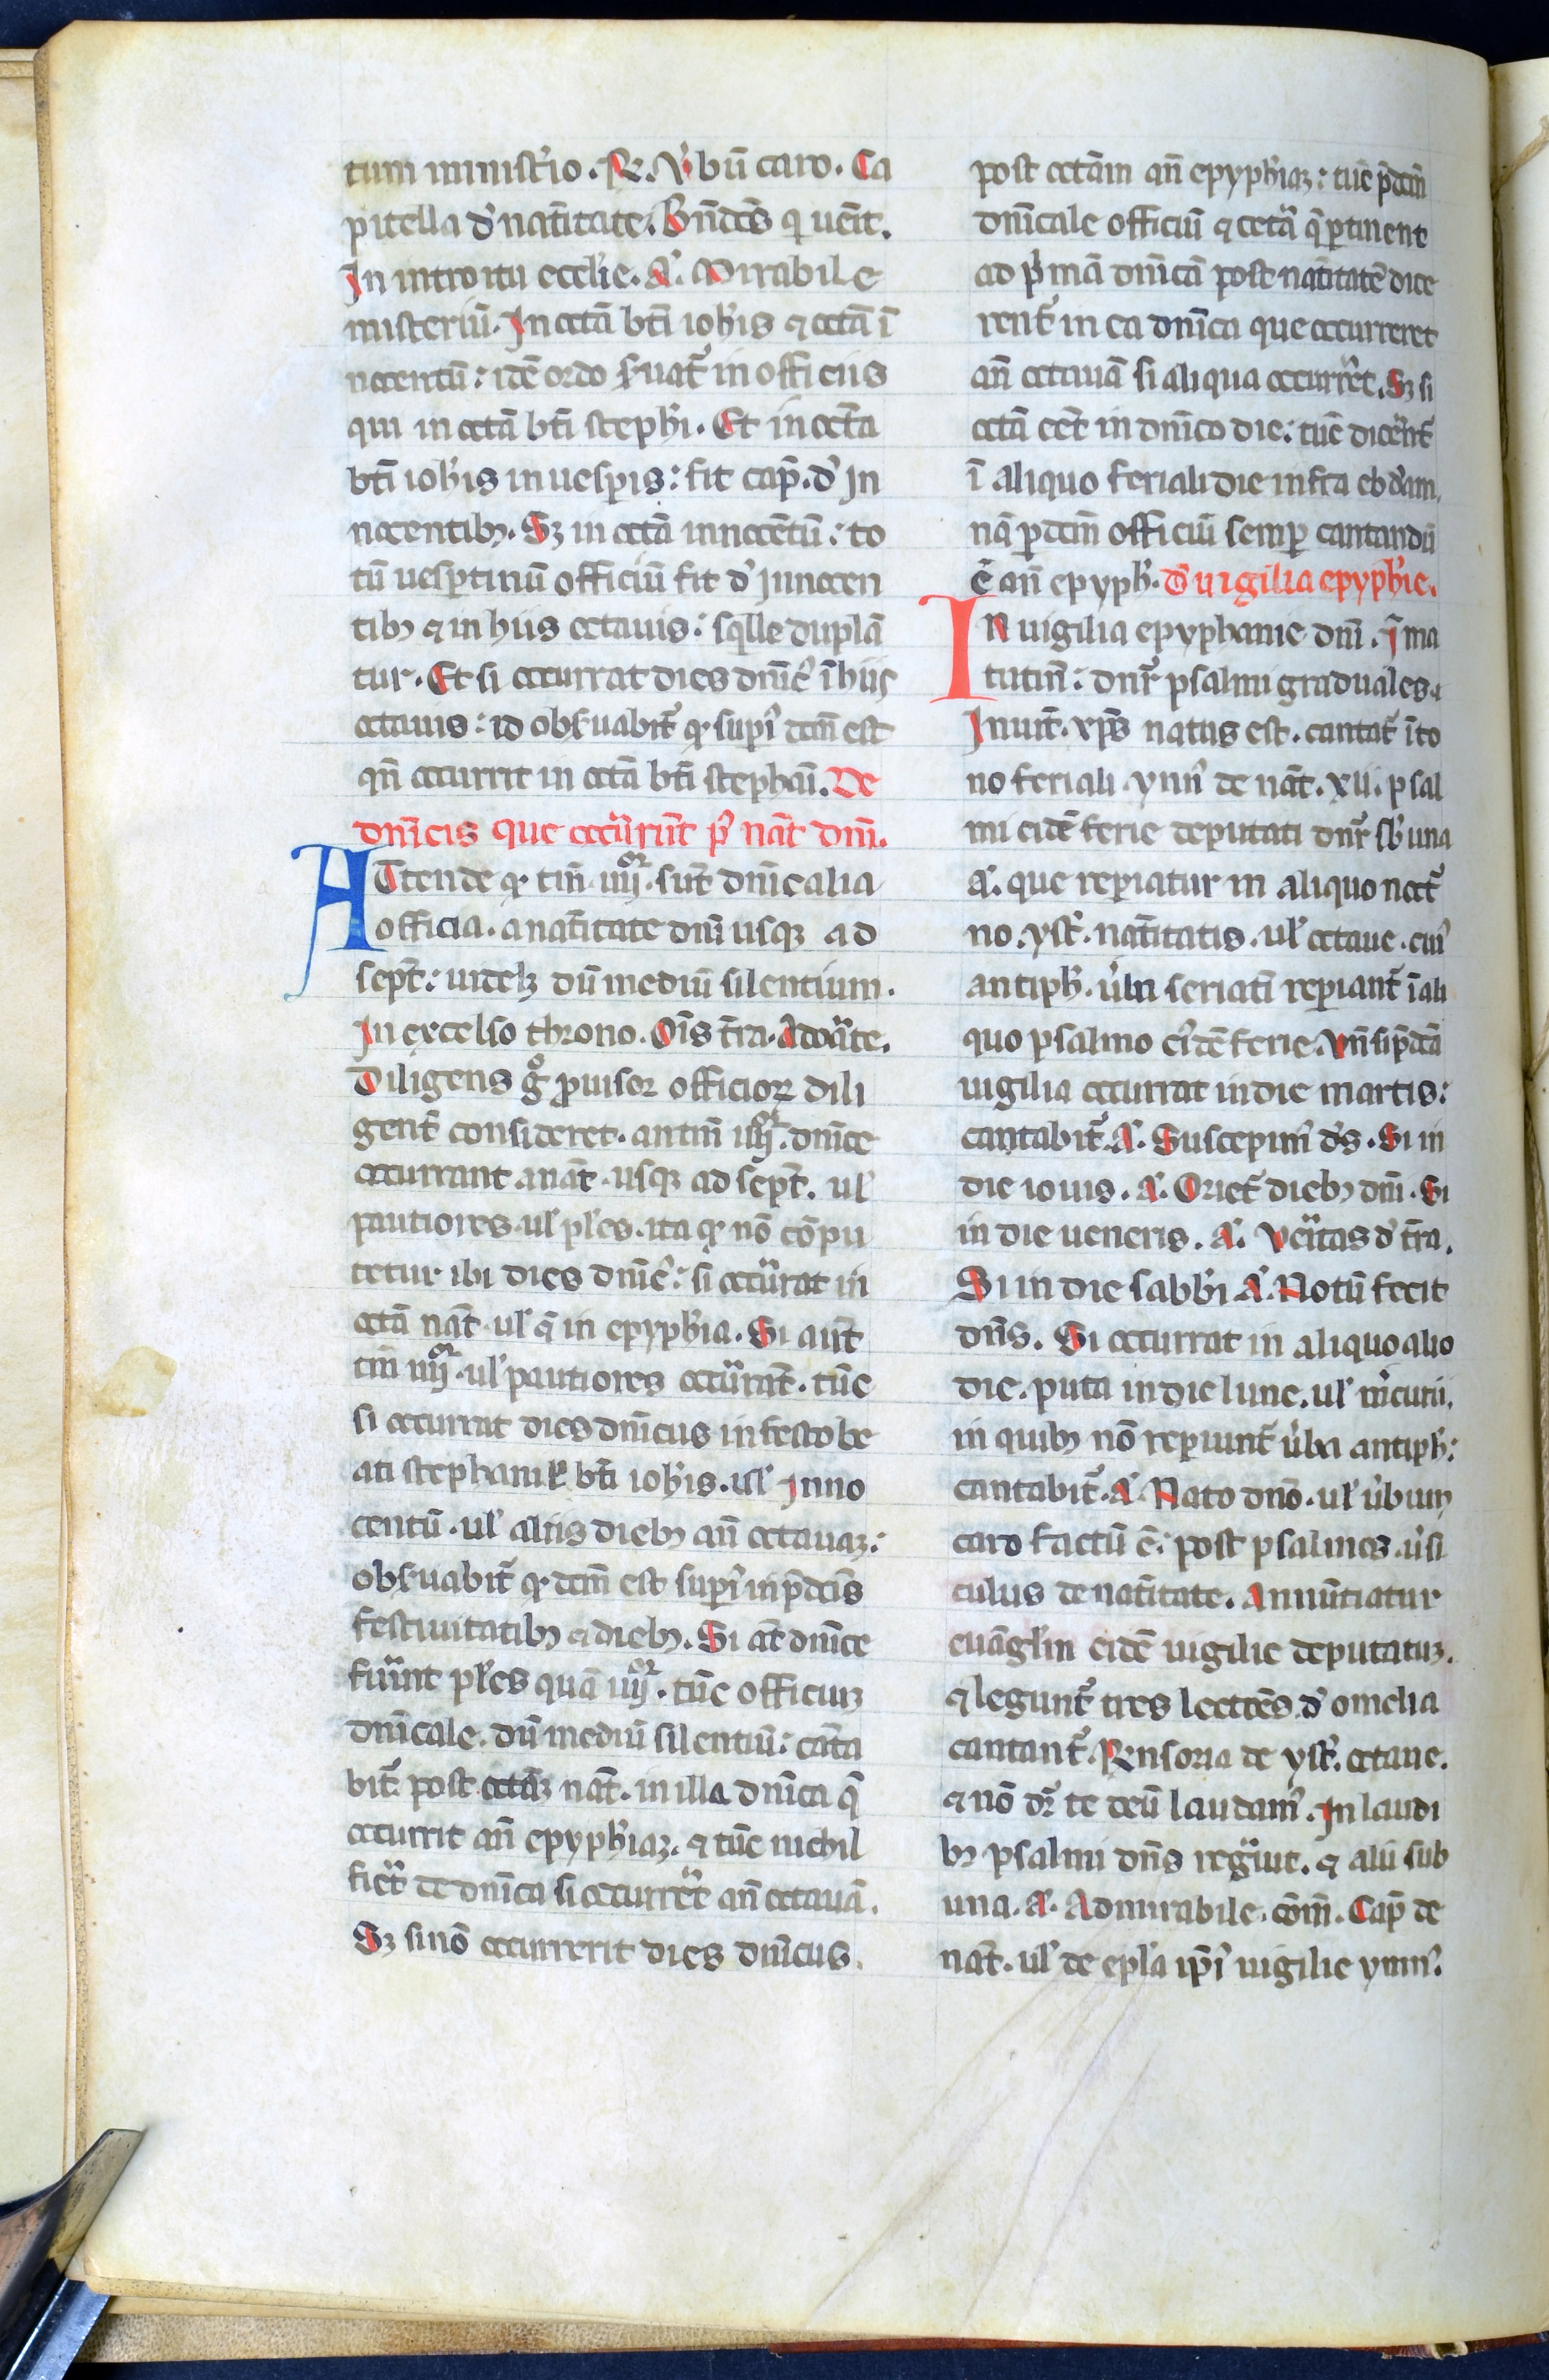 tum minist'io. R. V'bū caro. Ca
pitella d' nat̄itate. Bn̄dc̄s q̇ uēit.
In introitu eccl'ie. A'. Mirabile
misteriū. In octā bt̄i ioh'is ⁊ octā ī
nocentū: idē ordo s'uat᷑ in officiis
qui in octā bt̄i steph'i. Et in octā
bt̄i ioh'is in uesꝑis: fit cap̄. d' In
nocentibꝫ. Sꝫ in octā innocētū: to
tū uesꝑtinū officiū fit d' Innocen
tibꝫ ⁊ in hiis octauis: sqlle duplā
tur. Et si occurrat dies dn̄ic' ī hiis
octauis: id obs'uabit᷑ qͩ sup̄i' dcm̄ est
qn̄ occurrit in octā bt̄i stephāi. De
dn̄icis que occ'r̄unt p' nāt dn̄i.
ATtende qͩ tm̄ .iiij.or sūt dn̄icalia
officia. a nat̄itate dn̄i usqꝫ ad
sept̄: uidelꝫ dū mediū silentium.
In excelso throno. Oīs t̄ra. Adorāte.
Diligens gͦ ꝓuisor officioꝝ dili
gent᷑ consideret. an tm̄ iiij.or dn̄ice
occurrant a nāt. usqꝫ ad sept̄. ul'
pautiores ul' pl'es. ita qͩ nō cōpu
tetur ibi dies dn̄ic': si occ'rat in
octā nāt. ul' q̄ in epyph'ia. Si aut̄
tm̄ iiij.or ul' pautiores occ'rāt. tūc
si occurrat dies dn̄icus in festo be
ati stephani ul' bt̄i ioh'is. ul' Inno
centū. ul' aliis diebꝫ an̄ octauaꝫ:
obs'uabit᷑ qͩ dcm̄ est sup̄i' in p̄dc̄is
festiuitatibꝫ ⁊ diebꝫ. Si at̄ dn̄ice
fu'int pl'es quā iiij.or tūc officiuꝫ
dn̄icale. dū mediū silentiū: cāta
bit᷑ post octāꝫ nāt. in illa dn̄ica q̄
occurrit an̄ epyph'iaꝫ. ⁊ tūc nichil
fiet᷑ de dn̄ica si occurr'et an̄ octauā.
Sꝫ si nō occurrerit dies dn̄icus
post octām an̄ epyph'iaꝫ: tūc p̄dcm̄
dn̄icale officiū ⁊ cetā q̄ ꝑtinent
ad p'mā dn̄icā post nat̄itatē dice
rent᷑ in ea dn̄ica que occurreret
an̄ octauā si aliqua occurr'et. Sꝫ si
octā eēt in dn̄ico die: tūc dicerēt᷑
ī aliquo feriali die infra ebd'am.
nā p̄dcm̄ officiū semꝑ cantandū
ē an̄ epyph'. D' uigilia epyph'ie.
IN uigilia epyphanie dn̄i. ī ma
tutin̄: dn̄r psalmi graduales.
Inuit̄. xp̄s natus est. cantat᷑ ī to
no feriali. ymn' de nāt. xii. psal
mi eidē ferie deputati dn̄r sb' una
a'. que reꝑiatur in aliquo noct᷑
no. yst'. nat̄itatis. ul' octaue. cui'
antiph'. u'ba seriatī reꝑiant᷑ ī ali
quo psalmo ei'dē ferie. Vn̄ si p̄dc̄ā
uigilia occurrat in die martis:
cantabit᷑. A'. Suscepim' d's. Si in
die iouis. A'. Oriet᷑ diebꝫ dn̄i. Si
in die ueneris. A'. Veritas d' t̄ra.
Si in die sabb'i A'. Notū fecit
dn̄s. Si occurrat in aliquo alio
die. puta in die lune. ul' m'curii.
in quibꝫ nō reꝑiunt᷑ u'ba antiph':
cantabit᷑. A'. Nato dn̄o. ul' u'bum
caro factū ē. post psalmos. u'si
culus de nat̄itate. Annūtiatur
euāgl'm eidē uigilie deputatuꝫ.
⁊ legunt᷑ tres lectōes. d' omelia
cantant᷑. Rensoria de yst'. octaue.
⁊ nō dr̄ te deū laudam'. In laudi
bꝫ psalmi dn̄s reg'uit. ⁊ alii sub
una. A'. Admirabile. cōm̄. Cap̄ de
nāt. ul' de epl'a ip̄i' uigilie ymn'.